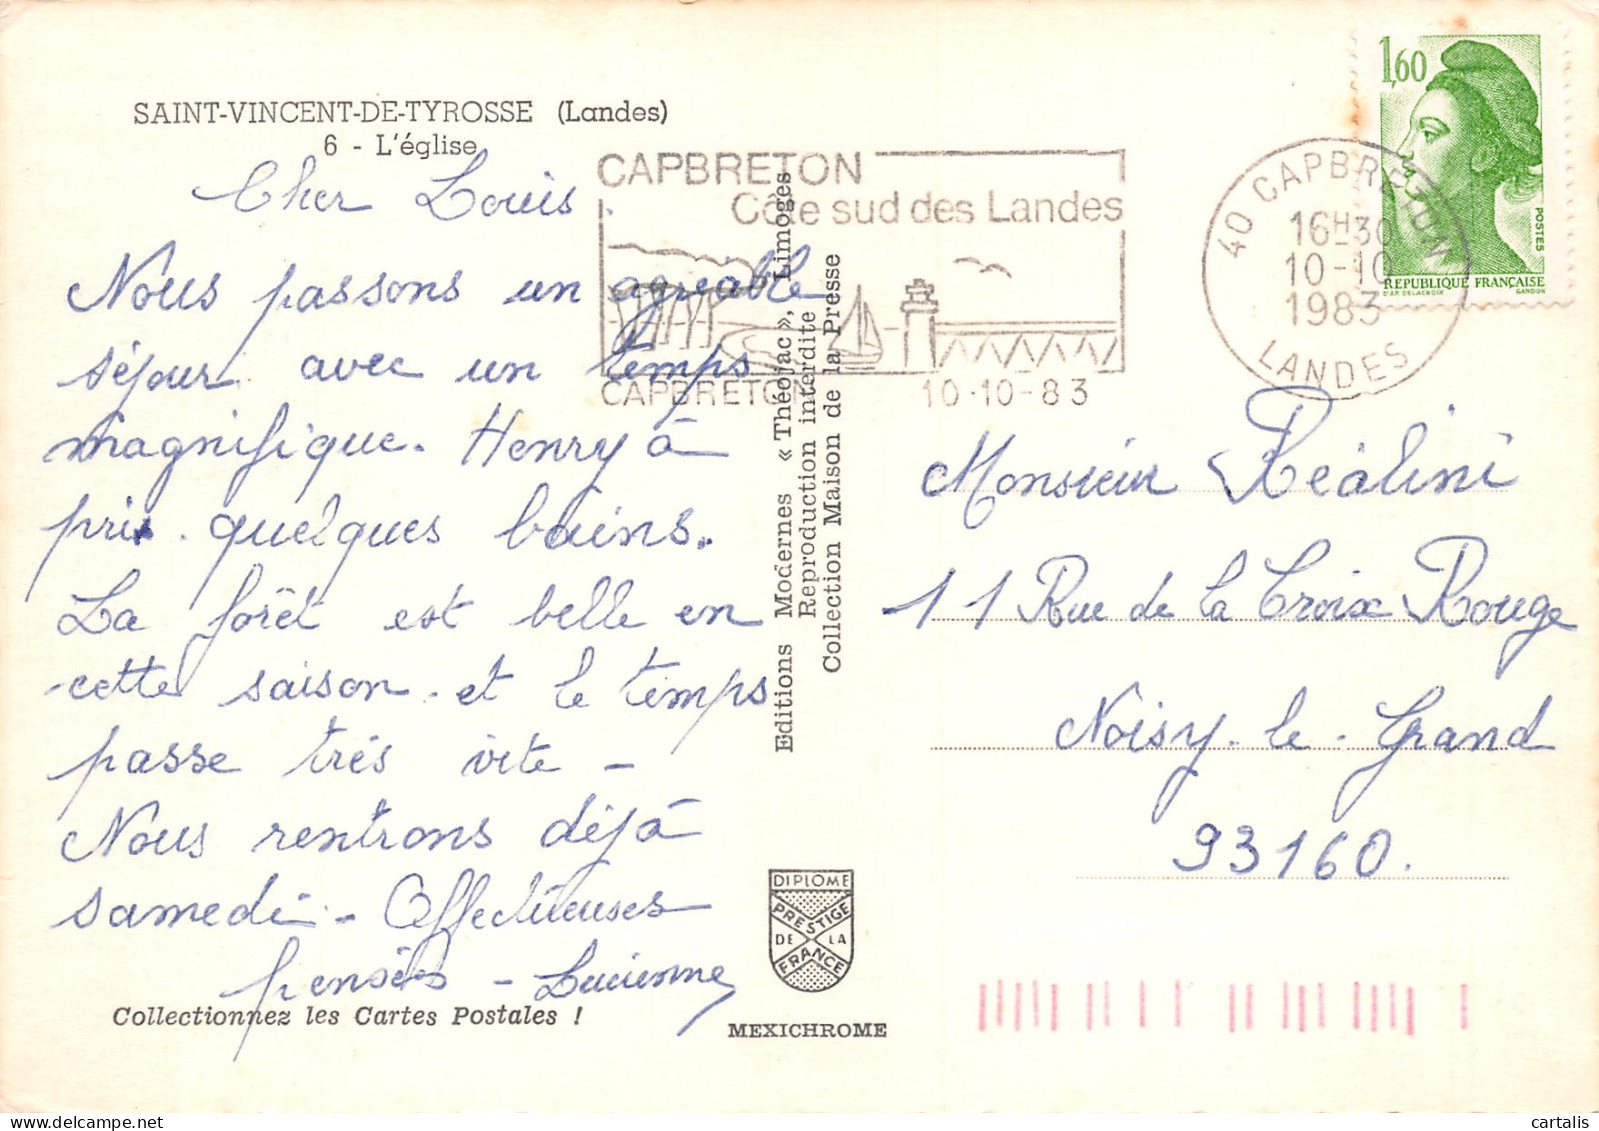 SAINT-VINCENT-DE-TYROSSE (Landes)
6 - L'église
Cher Louis.
Nous passons un agréable
séjour avec un temps
magnifique. Henry à
pris quelques bains.
La forêt est belle en
cette saison et le temps
passe très vite -
Nous rentrons déjà
samedi - Affectueuses
pensées - Lucienne
Collectionnez les Cartes Postales !
Editions Modernes « Théojac », Limoges
Reproduction interdite
Collection Maison de la Presse
DIPLOME
PRESTIGE
DE LA
FRANCE
MEXICHROME
CAPBRETON
Côte sud des Landes
CAPBRETON 10-10-83
40 CAPBRETON
16H30
10-10
1983
LANDES
1,60
POSTES
REPUBLIQUE FRANÇAISE
D'AP. DELACROIX GANDON
Monsieur Réalini
11 Rue de la Croix Rouge
Noisy-le-Grand
93160.
cartalis